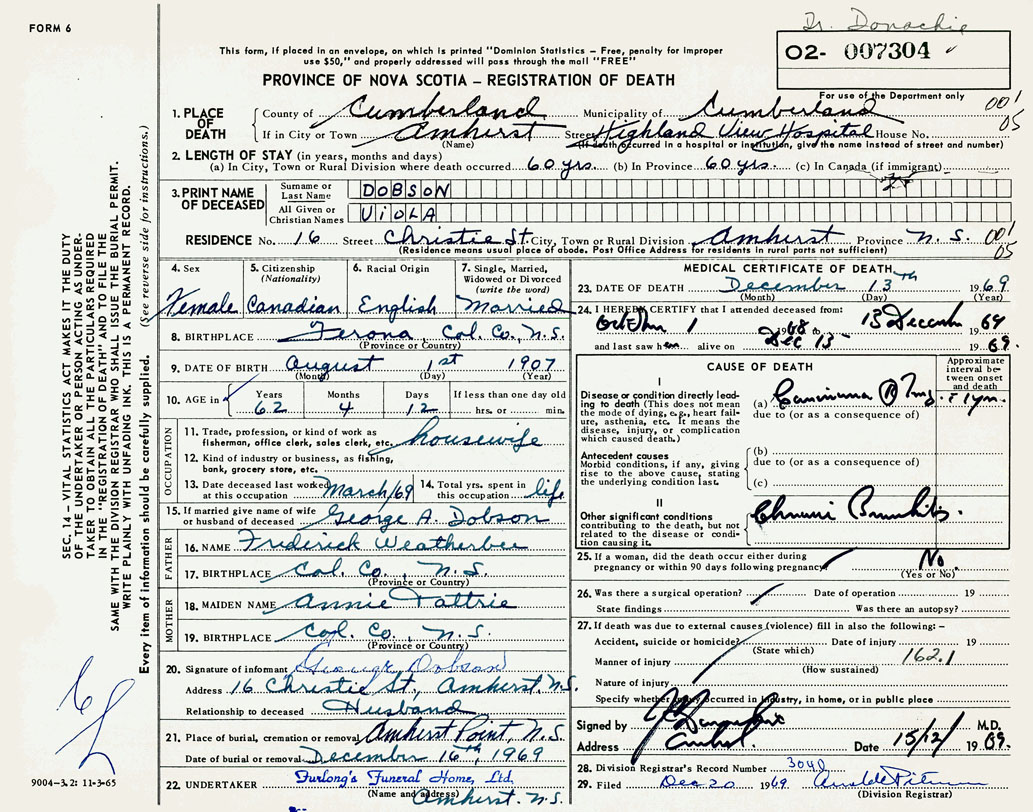 FORM 6
Dr. Donachie
02- 007304
This form, if placed in an envelope, on which is printed "Dominion Statistics – Free, penalty for improper
use $50," and properly addressed will pass through the mail "FREE"
PROVINCE OF NOVA SCOTIA – REGISTRATION OF DEATH
For use of the Department only
1. PLACE OF DEATH County of Cumberland Municipality of Cumberland 001
If in City or Town Amherst Street Highland View Hospital House No. 05
(Name) (If death occurred in a hospital or institution, give the name instead of street and number)
2. LENGTH OF STAY (in years, months and days)
(a) In City, Town or Rural Division where death occurred 60 yrs. (b) In Province 60 yrs. (c) In Canada (if immigrant)
3. PRINT NAME OF DECEASED Surname or Last Name DOBSON
All Given or Christian Names ViOLA
RESIDENCE No. 16 Street Christie St. City, Town or Rural Division Amherst Province N.S. 001
(Residence means usual place of abode. Post Office Address for residents in rural parts not sufficient) 05
4. Sex Female
5. Citizenship (Nationality) Canadian
6. Racial Origin English
7. Single, Married, Widowed or Divorced (write the word) Married
8. BIRTHPLACE Col. Co., N.S.
(Province or Country)
9. DATE OF BIRTH August 1st 1907
(Month) (Day) (Year)
10. AGE in Years 62 Months 4 Days 12 If less than one day old hrs. or min.
OCCUPATION
11. Trade, profession, or kind of work as
fisherman, office clerk, sales clerk, etc. housewife
12. Kind of industry or business, as fishing,
bank, grocery store, etc.
13. Date deceased last worked at this occupation March/69 14. Total yrs. spent in this occupation life
15. If married give name of wife
or husband of deceased George A. Dobson
FATHER
16. NAME Frederick Weatherbee
17. BIRTHPLACE Col. Co., N.S.
(Province or Country)
MOTHER
18. MAIDEN NAME Annie Tattrie
19. BIRTHPLACE Col. Co., N.S.
(Province or Country)
20. Signature of informant George Dobson
Address 16 Christie St., Amherst, N.S.
Relationship to deceased Husband
21. Place of burial, cremation or removal Amherst Point, N.S.
Date of burial or removal December 16th, 1969
22. UNDERTAKER Furlong's Funeral Home, Ltd.
(Name and address) Amherst. N.S.
MEDICAL CERTIFICATE OF DEATH
23. DATE OF DEATH December 13th 1969
(Month) (Day) (Year)
24. I HEREBY CERTIFY that I attended deceased from:
1 1968 to 13 December 1969
and last saw her alive on Dec 13 1969.
CAUSE OF DEATH
Approximate interval between onset and death
I
Disease or condition directly leading to death (This does not mean
the mode of dying, e.g., heart failure, asthenia, etc. It means the
disease, injury, or complication
which caused death.)
(a) Carcinoma (R) lung. 1 yr.
due to (or as a consequence of)
Antecedent causes
Morbid conditions, if any, giving
rise to the above cause, stating
the underlying condition last.
(b)
due to (or as a consequence of)
(c)
II
Other significant conditions
contributing to the death, but not
related to the disease or condition causing it.
Chronic Bronchitis.
25. If a woman, did the death occur either during
pregnancy or within 90 days following pregnancy No
(Yes or No)
26. Was there a surgical operation? Date of operation 19
State findings Was there an autopsy?
27. If death was due to external causes (violence) fill in also the following: –
Accident, suicide or homicide? Date of injury 19
(State which)
Manner of injury 162.1
(How sustained)
Nature of injury
Specify whether injury occurred in industry, in home, or in public place
Signed by M.D.
Address Amherst. Date 15/12/ 1969.
28. Division Registrar's Record Number 3040
29. Filed Dec 20 1969
(Division Registrar)
SEC. 14 – VITAL STATISTICS ACT MAKES IT THE DUTY
OF THE UNDERTAKER OR PERSON ACTING AS UNDER-
TAKER TO OBTAIN ALL THE PARTICULARS REQUIRED
IN THE "REGISTRATION OF DEATH" AND TO FILE THE
SAME WITH THE DIVISION REGISTRAR WHO SHALL ISSUE THE BURIAL PERMIT.
WRITE PLAINLY WITH UNFADING INK. THIS IS A PERMANENT RECORD.
Every item of information should be carefully supplied. (See reverse side for instructions.)
9004-3.2: 11-3-65